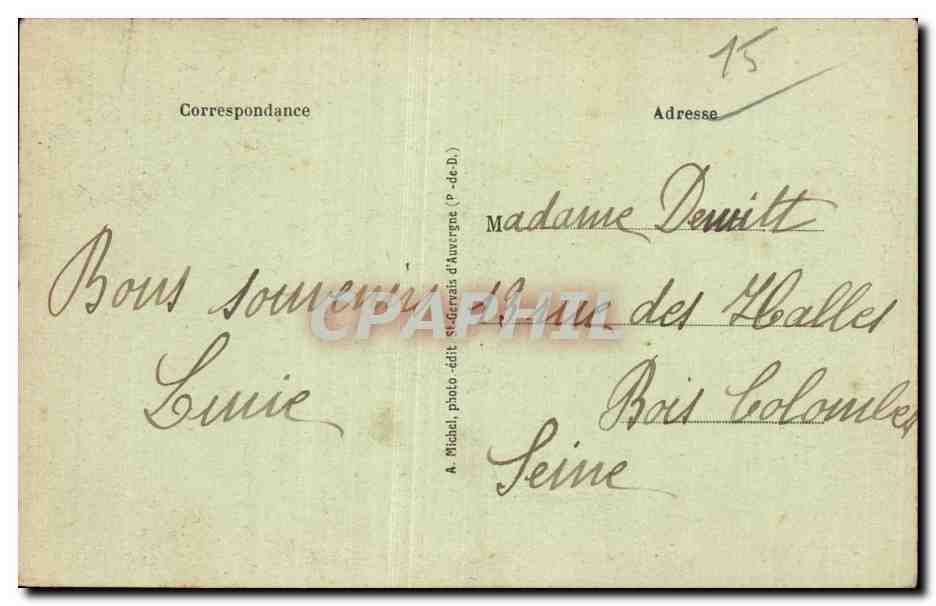 15
Correspondance
Adresse
Bons souvenirs
Lucie
A. Michel, photo-édit St-Gervais d'Auvergne (P-de-D.)
Madame Dewitt
13 rue des Halles
Bois Colombes
Seine
CPAPHIL